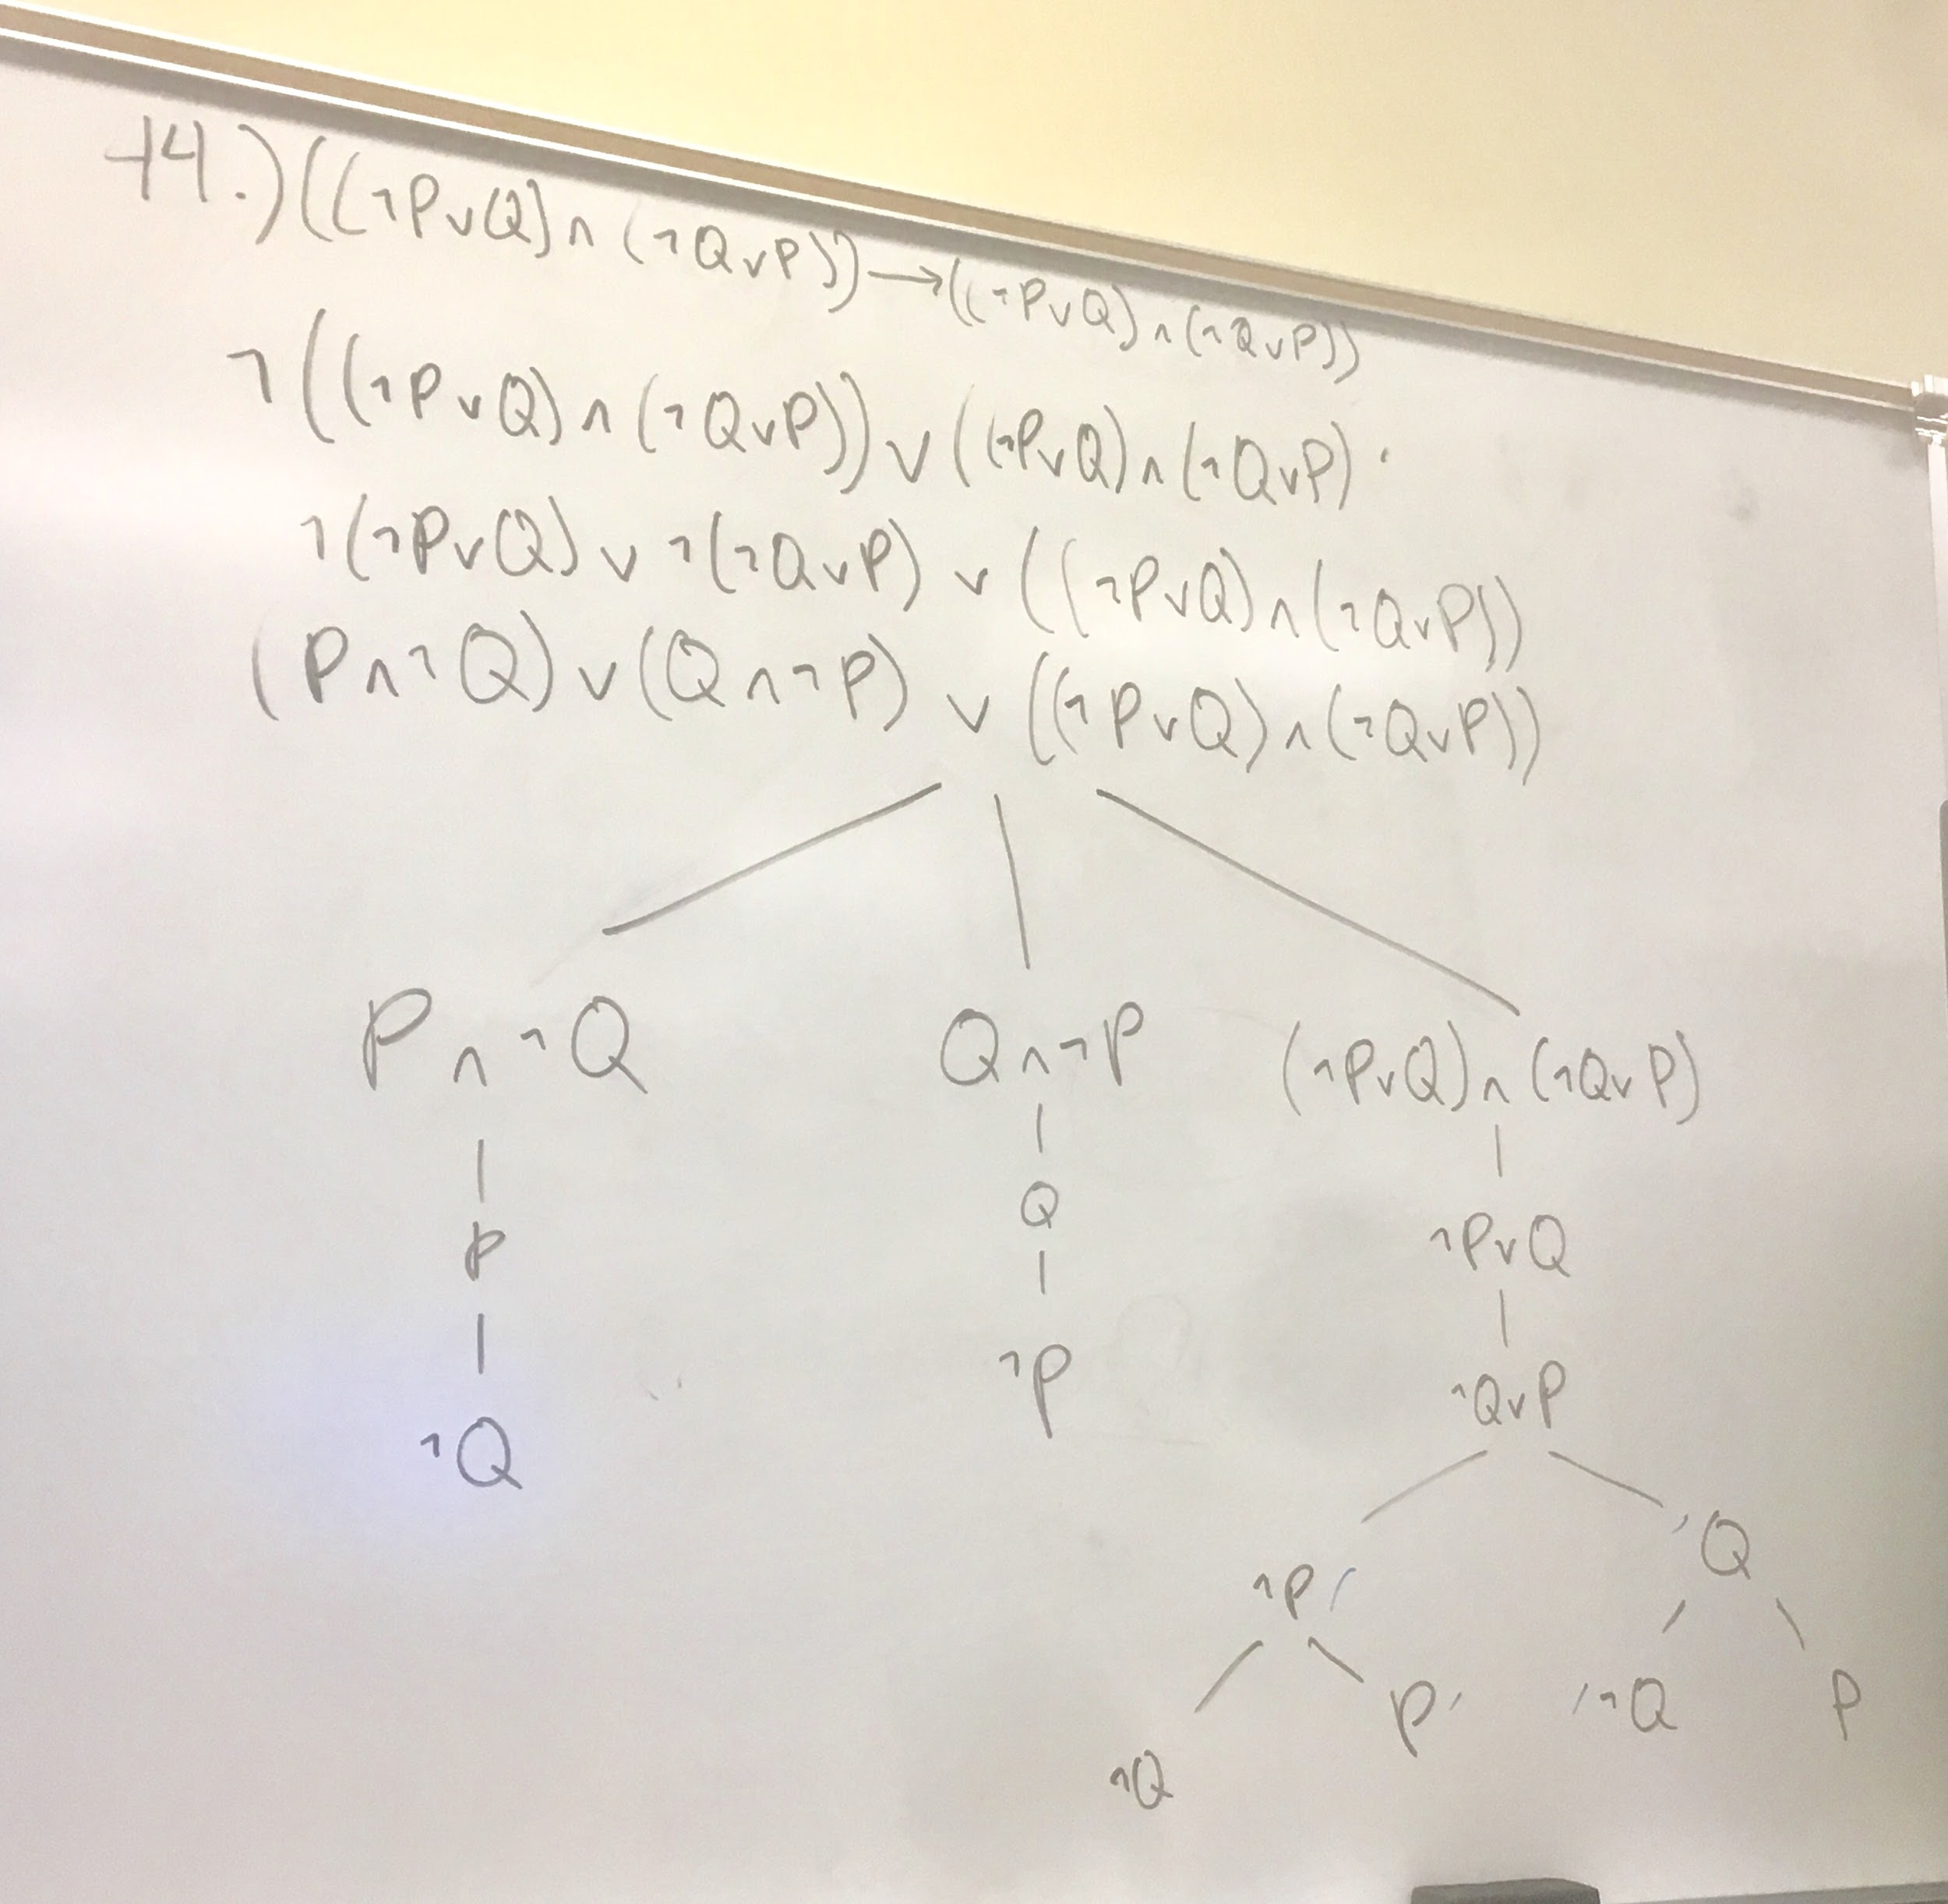 14.) ((¬P∨Q)∧(¬Q∨P))→((¬P∨Q)∧(¬Q∨P))
¬((¬P∨Q)∧(¬Q∨P))∨((¬P∨Q)∧(¬Q∨P)
¬(¬P∨Q)∨¬(¬Q∨P)∨((¬P∨Q)∧(¬Q∨P))
(P∧¬Q)∨(Q∧¬P)∨((¬P∨Q)∧(¬Q∨P))
P∧¬Q Q∧¬P (¬P∨Q)∧(¬Q∨P)
P Q ¬P∨Q
¬Q ¬P ¬Q∨P
¬P Q
¬Q P ¬Q P